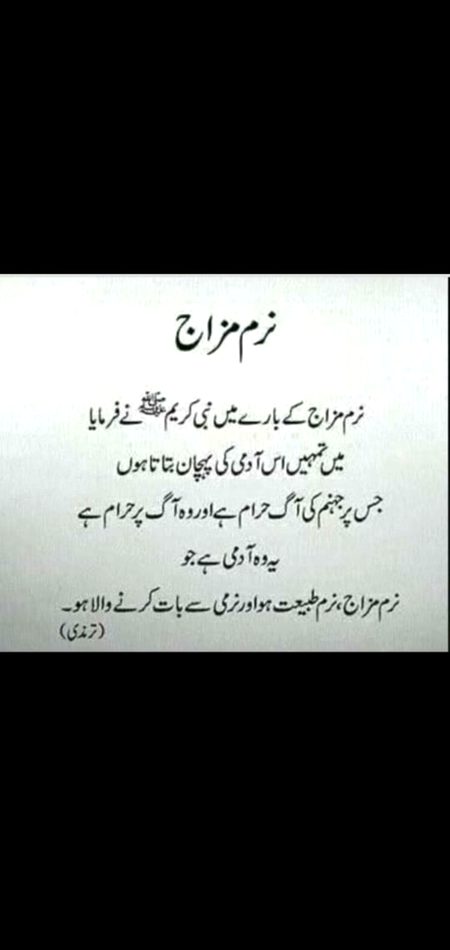 نرم مزاج
نرم مزاج کے بارے میں نبی کریم ﷺ نے فرمایا
میں تمہیں اس آدمی کی پہچان بتاتا ہوں
جس پر جہنم کی آگ حرام ہے اور وہ آگ پر حرام ہے
یہ وہ آدمی ہے جو
نرم مزاج، نرم طبیعت ہو اور نرمی سے بات کرنے والا ہو۔
(ترمذی)